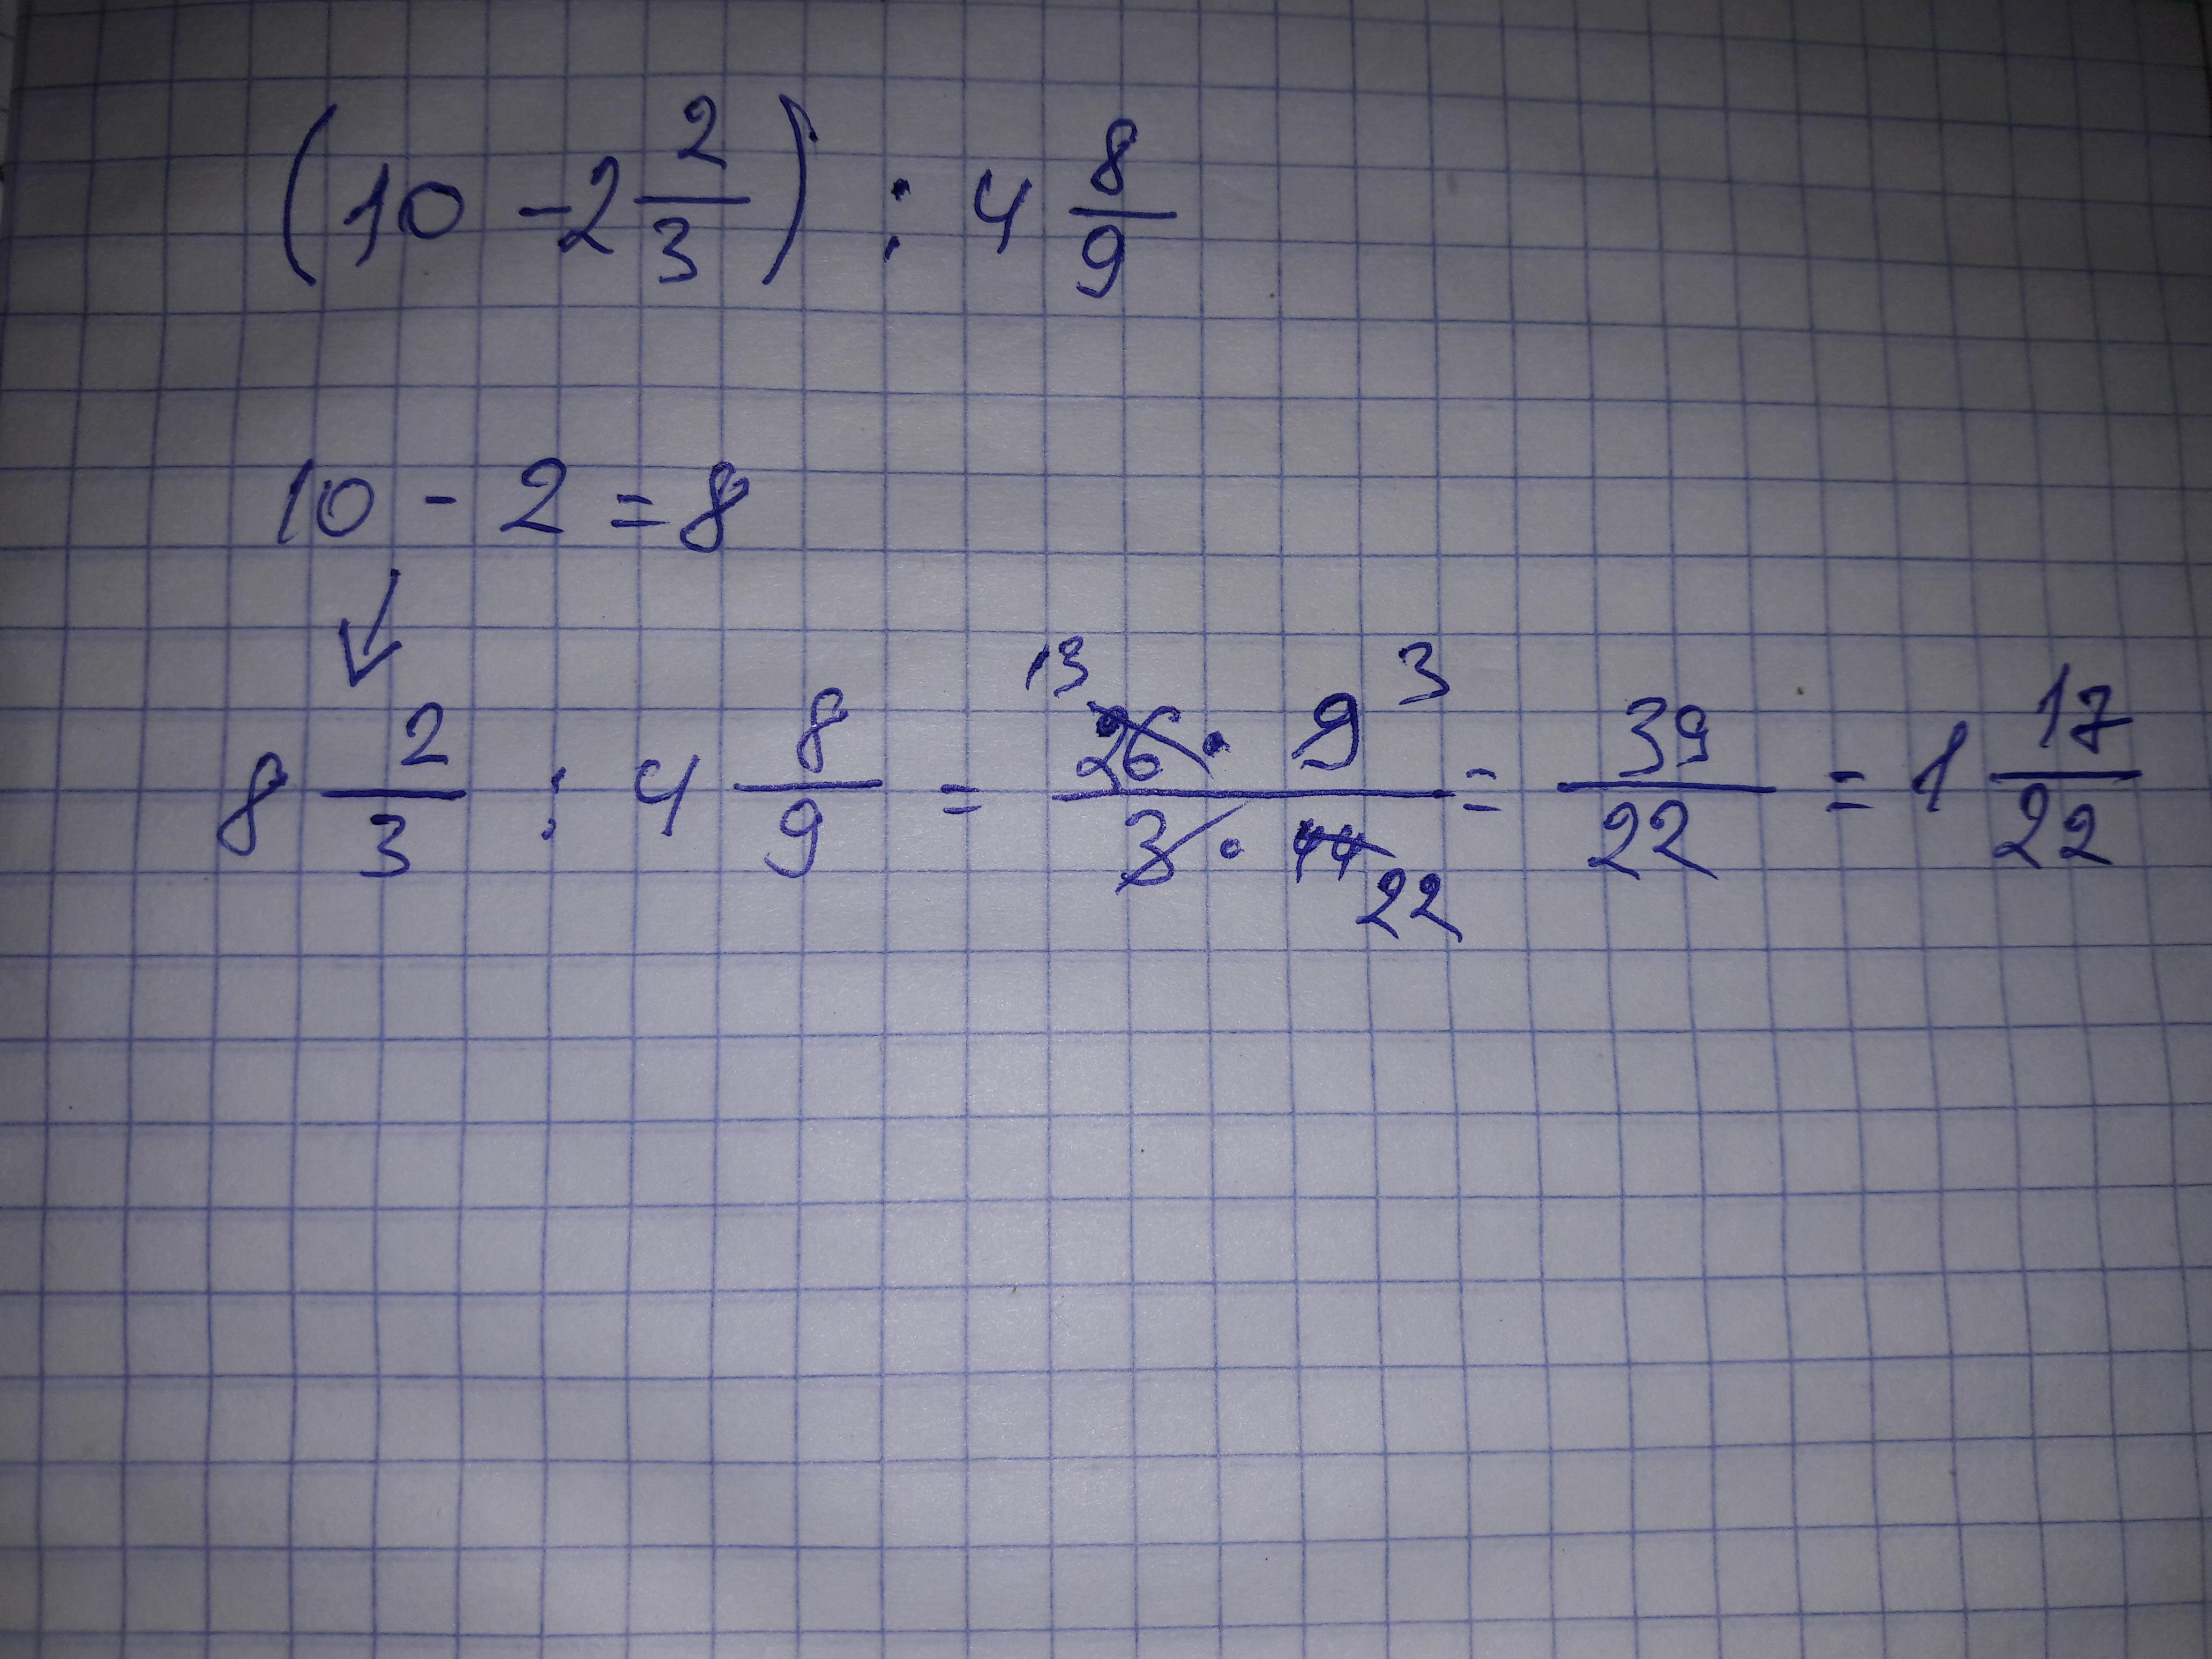 (10 - 2 2/3) : 4 8/9
10 - 2 = 8
↙
8 2/3 : 4 8/9 = 13 26 · 9 3 / 3 · 44 22 = 39/22 = 1 17/22